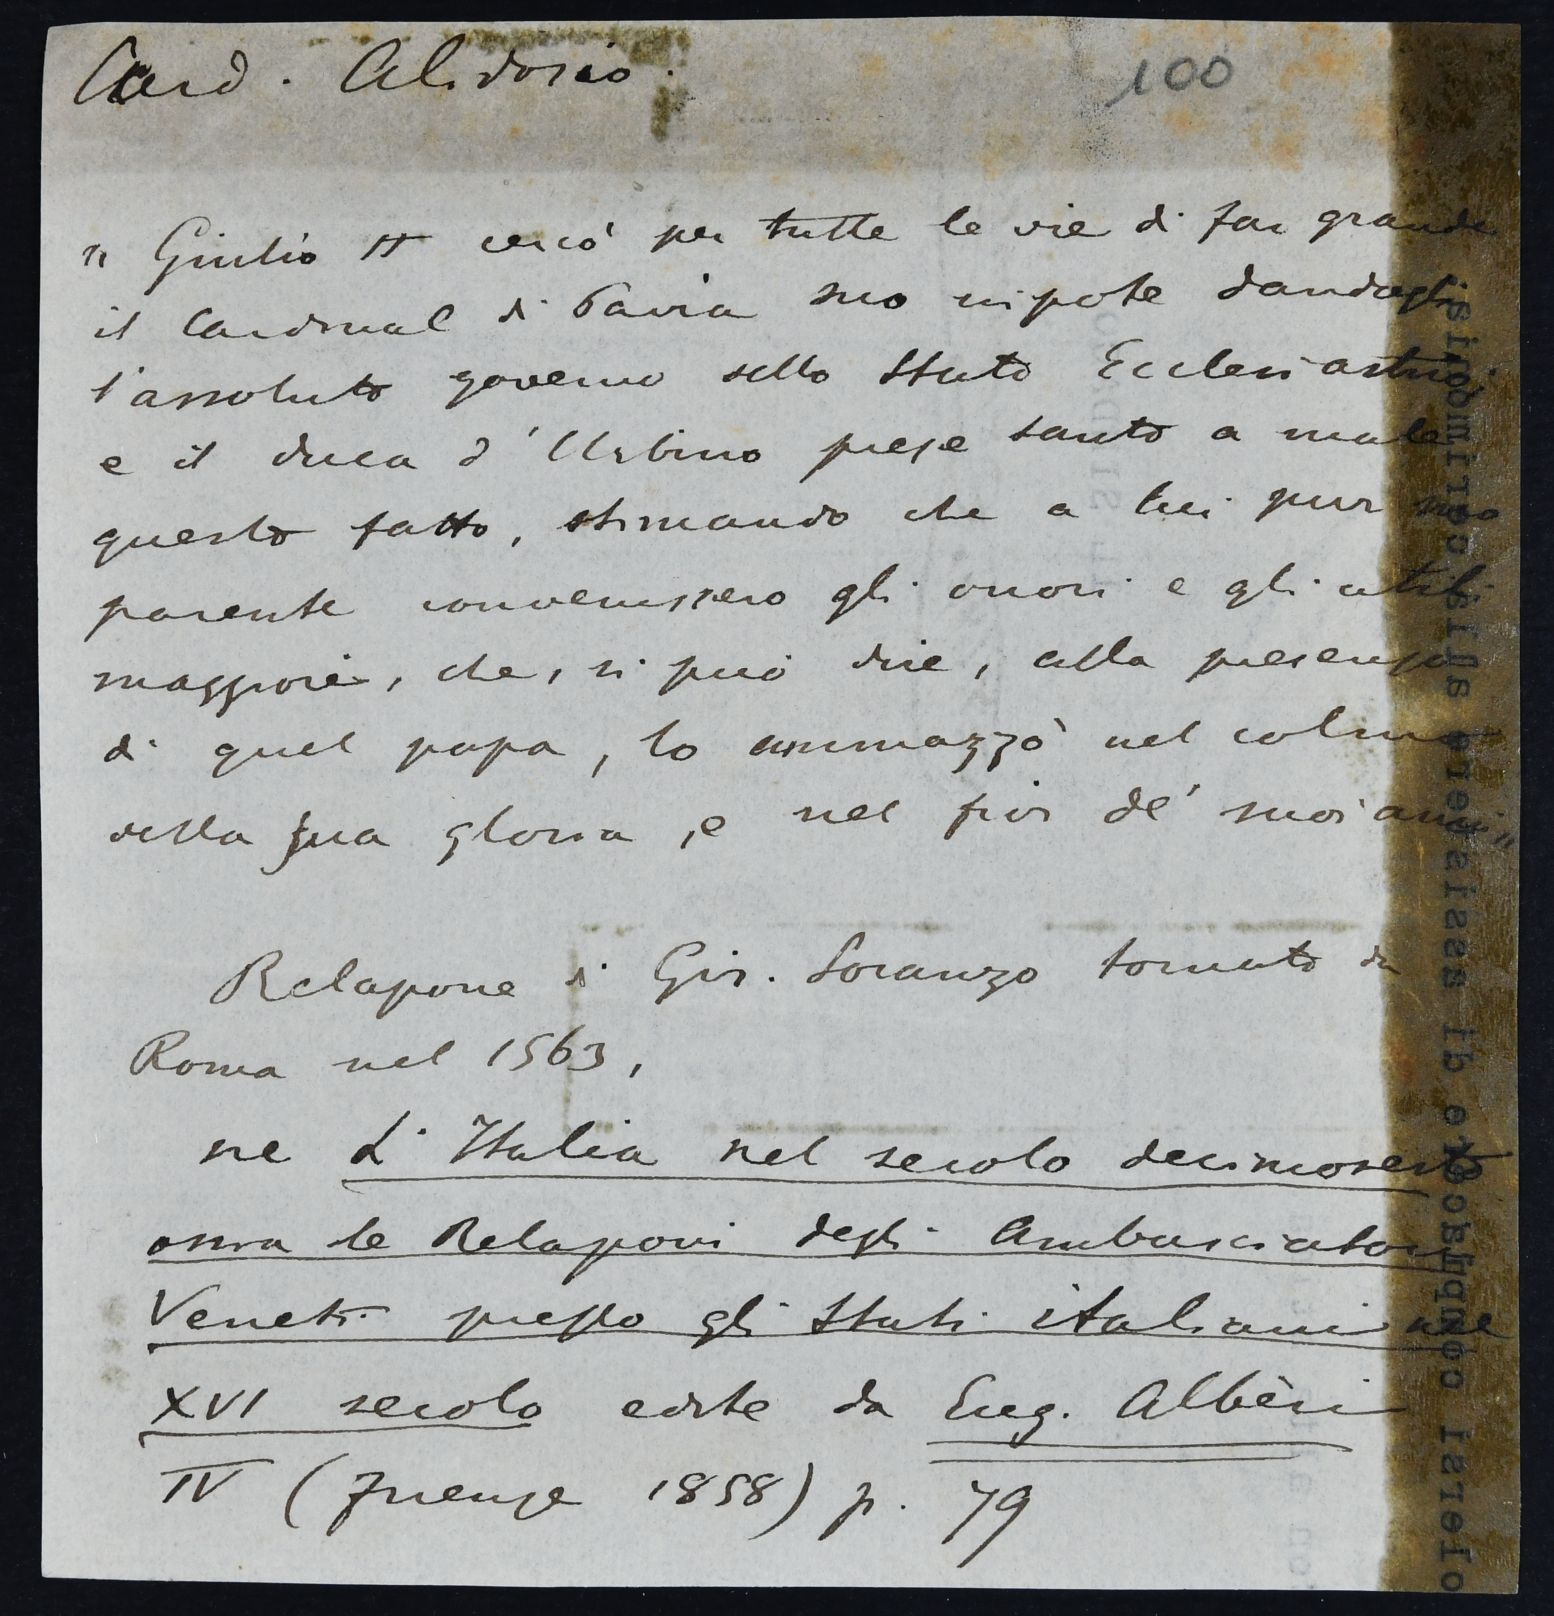 Card. Alidosio.
100
" Giulio II cercò per tutte le vie di far grande
il Cardinal di Pavia suo nipote dandogli
l'assoluto governo dello Stato Ecclesiastico
e il duca d'Urbino prese tanto a male
questo fatto, stimando che a lui pur suo
parente convenissero gli onori e gli utili
maggiori, che, si può dire, alla presenza
di quel papa, lo ammazzò nel colmo
della sua gloria, e nel fior de' suoi anni"
Relazione di Gir. Soranzo tornato da
Roma nel 1563,
ne L'Italia nel secolo decimosesto
ossia le Relazioni degli Ambasciatori
Veneti presso gli Stati italiani nel
XVI secolo edite da Eug. Albèri
IV (Firenze 1858) p. 79